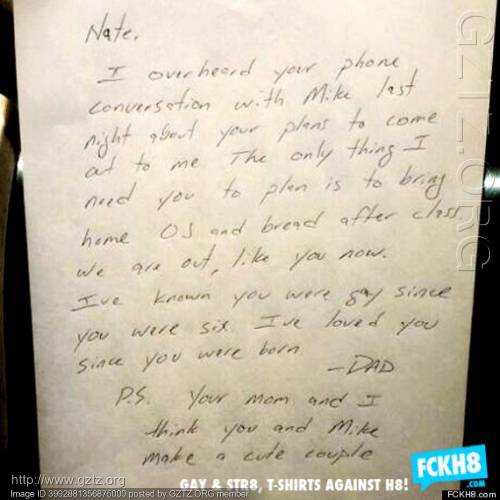 Nate,
I overheard your phone
conversation with Mike last
night about your plans to come
out to me The only thing I
need you to plan is to bring
home OJ and bread after class
we are out, like you now.
I've known you were gay since
you were six I've loved you
since you were born
-DAD
P.S. Your mom and I
think you and Mike
make a cute couple
GZTZ.ORG
FCKH8
.COM
GAY & STR8, T-SHIRTS AGAINST H8!
http://www.gztz.org
Image ID 3992881356876000 posted by GZTZ.ORG member
FCKH8.com